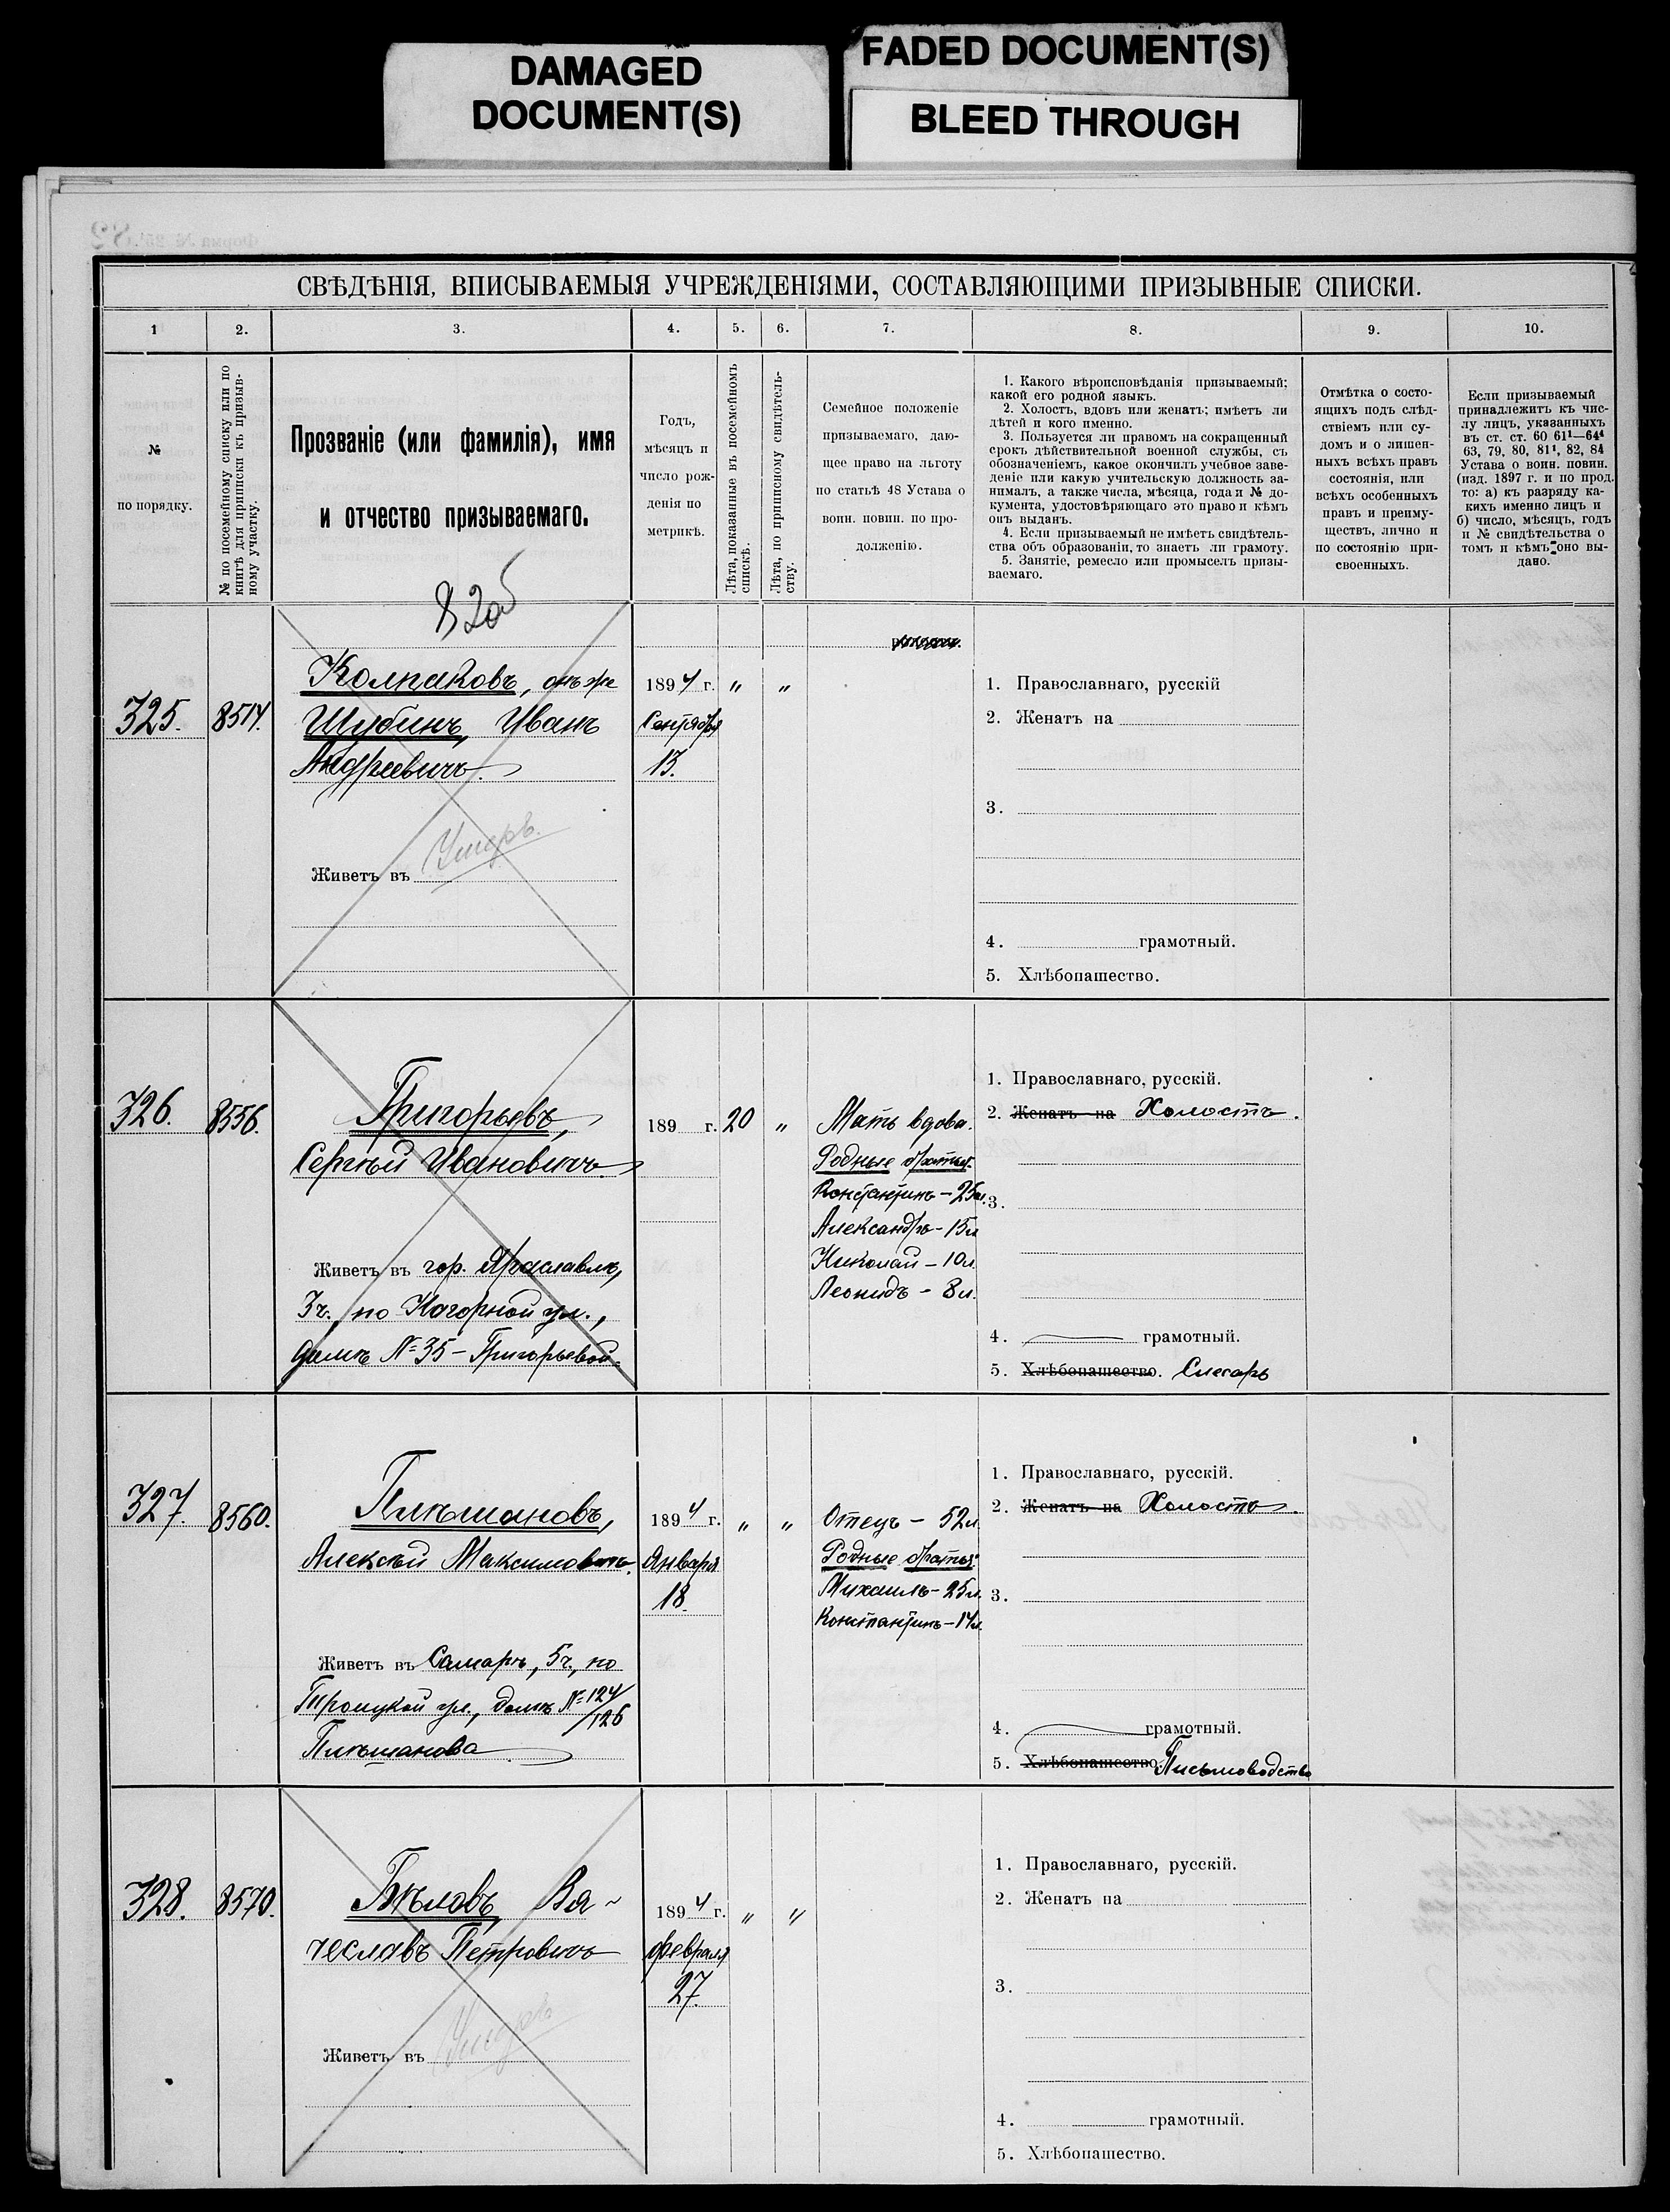 DAMAGED
DOCUMENT(S)
FADED DOCUMENT(S)
BLEED THROUGH
СВѢДѢНІЯ, ВПИСЫВАЕМЫЯ УЧРЕЖДЕНІЯМИ, СОСТАВЛЯЮЩИМИ ПРИЗЫВНЫЕ СПИСКИ.
1 2. 3. 4. 5. 6. 7. 8. 9. 10.
№
по порядку.
№ по посемейному списку или по
книгѣ для приписки къ призыв-
ному участку.
Прозваніе (или фамилія), имя
и отчество призываемаго.
Годъ,
мѣсяцъ и
число рож-
денія по
метрикѣ.
Лѣта, показанные въ посемейномъ
спискѣ.
Лѣта, по приписному свидѣтель-
ству.
Семейное положеніе
призываемаго, даю-
щее право на льготу
по статьѣ 48 Устава о
воин. повин. по про-
долженію.
1. Какого вѣроисповѣданія призываемый;
какой его родной языкъ.
2. Холостъ, вдовъ или женатъ; имѣетъ ли
дѣтей и кого именно.
3. Пользуется ли правомъ на сокращенный
срокъ дѣйствительной военной службы, съ
обозначеніемъ, какое окончилъ учебное заве-
деніе или какую учительскую должность за-
нималъ, а также числа, мѣсяца, года и № до-
кумента, удостовѣряющаго это право и кѣмъ
онъ выданъ.
4. Если призываемый не имѣетъ свидѣтель-
ства объ образованіи, то знаетъ ли грамоту.
5. Занятіе, ремесло или промыселъ призы-
ваемаго.
Отмѣтка о состо-
ящихъ подъ слѣд-
ствіемъ или су-
домъ и о лишен-
ныхъ всѣхъ правъ
состоянія, или
всѣхъ особенныхъ
правъ и преиму-
ществъ, лично и
по состоянію при-
своенныхъ.
Если призываемый
принадлежитъ къ чис-
лу лицъ, указанныхъ
въ ст. ст. 60 61¹—64⁴
63, 79, 80, 81¹, 82, 84
Устава о воин. повин.
(изд. 1897 г. и по прод.
то: а) къ разряду ка-
кихъ именно лицъ и
б) число, мѣсяцъ, годъ
и № свидѣтельства о
томъ и кѣмъ оно вы-
дано.
82об
325. 8514.
Колпаковъ, онъ же
Шубинъ, Иванъ
Андреевичъ.
Живетъ въ Умеръ.
1894 г. " "
Сентября
13.
1. Православнаго, русскій
2. Женатъ на
3.
4. грамотный.
5. Хлѣбопашество.
326. 8556.
Григорьевъ,
Сергѣй Ивановичъ.
Живетъ въ гор. Ярославлѣ,
3ч., по Нагорной ул.,
домъ № 35 - Григорьевой.
189 г. 20 "
Мать вдова.
Родные братья:
Константинъ - 25л.
Александръ - 15л.
Николай - 10л.
Леонидъ - 8л.
1. Православнаго, русскій.
2. Женатъ на Холостъ.
3.
4. грамотный.
5. Хлѣбопашество. Слесарь
327. 8560.
Плѣшановъ,
Алексѣй Максимовичъ.
Живетъ въ Самарѣ, 5ч., по
Троицкой ул., домъ № 124/126
Плѣшанова
1894 г. " "
Января
18.
Отецъ - 52л.
Родные братья:
Михаилъ - 25л.
Константинъ - 14л.
1. Православнаго, русскій.
2. Женатъ на Холостъ.
3.
4. грамотный.
5. Хлѣбопашество. Письмоводство
328. 8570.
Бѣловъ, Вя-
чеславъ Петровичъ
Живетъ въ Умеръ
1894 г. " "
февраля
27.
1. Православнаго, русскій.
2. Женатъ на
3.
4. грамотный.
5. Хлѣбопашество.